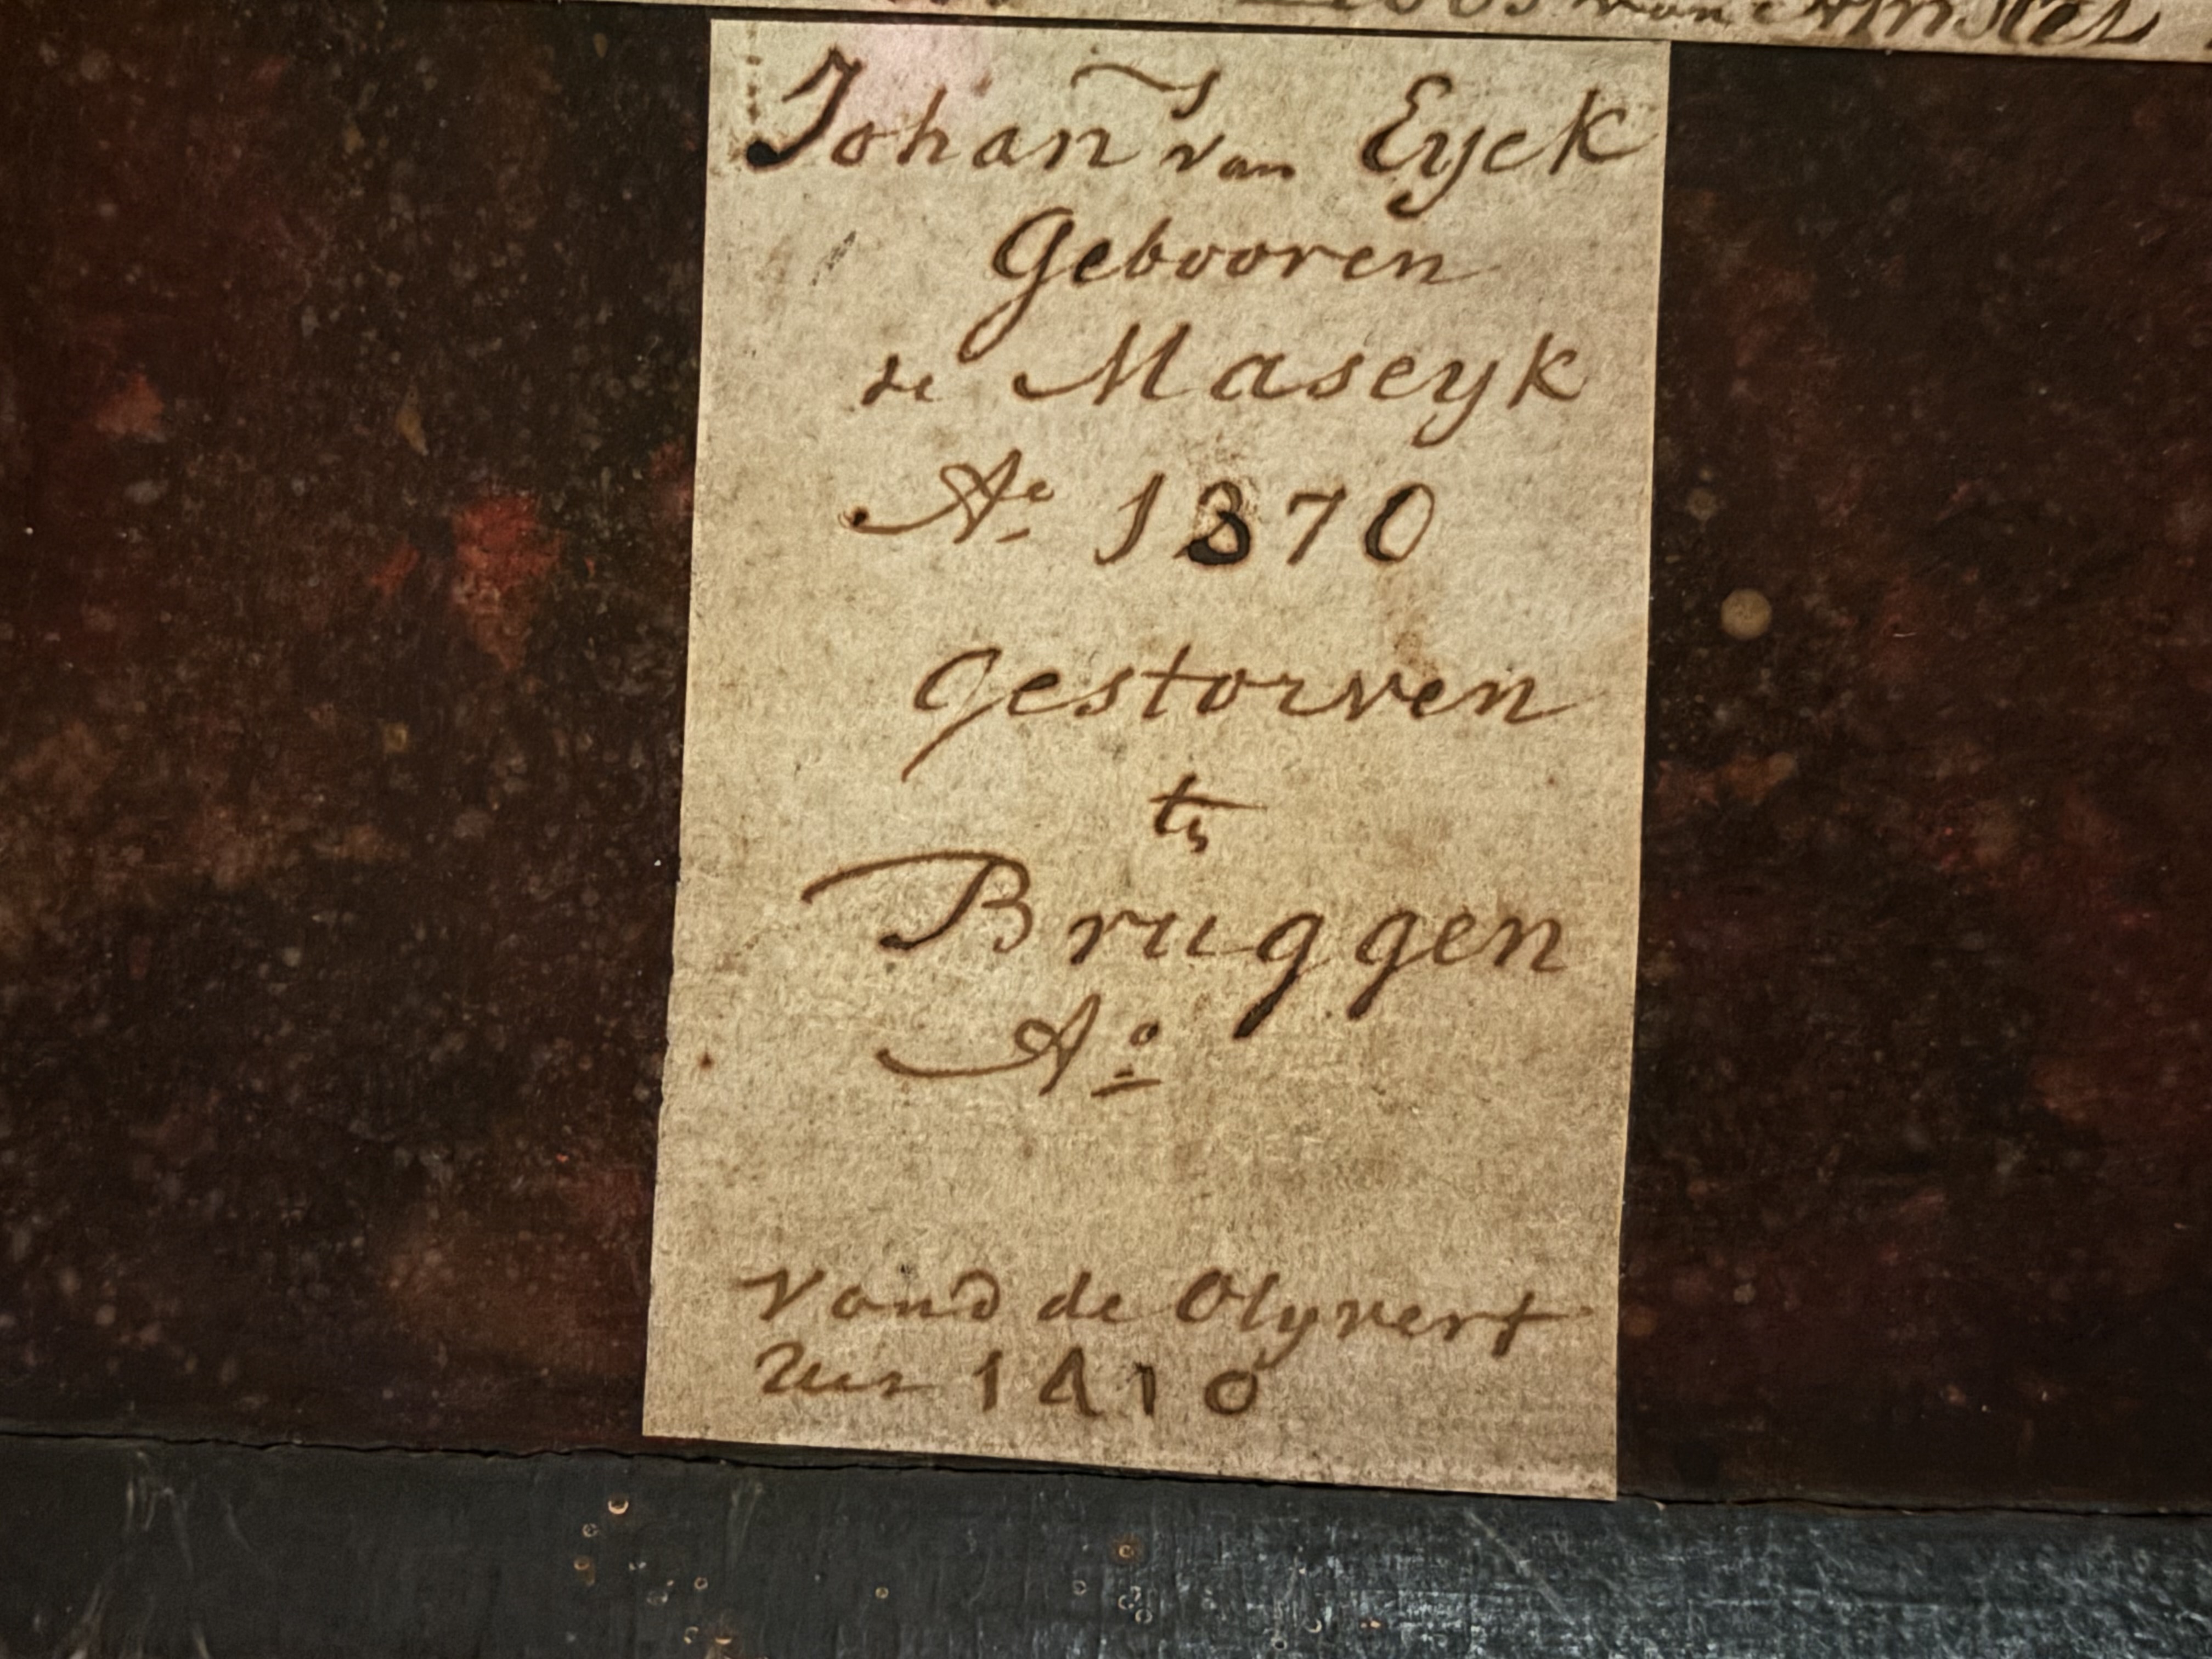 van Amstel
Johan̄s van Eyck
Gebooren
de Maseyk
Aº 1370
Gestorven
te
Bruggen
Aº
Vond de Olyverf
1410